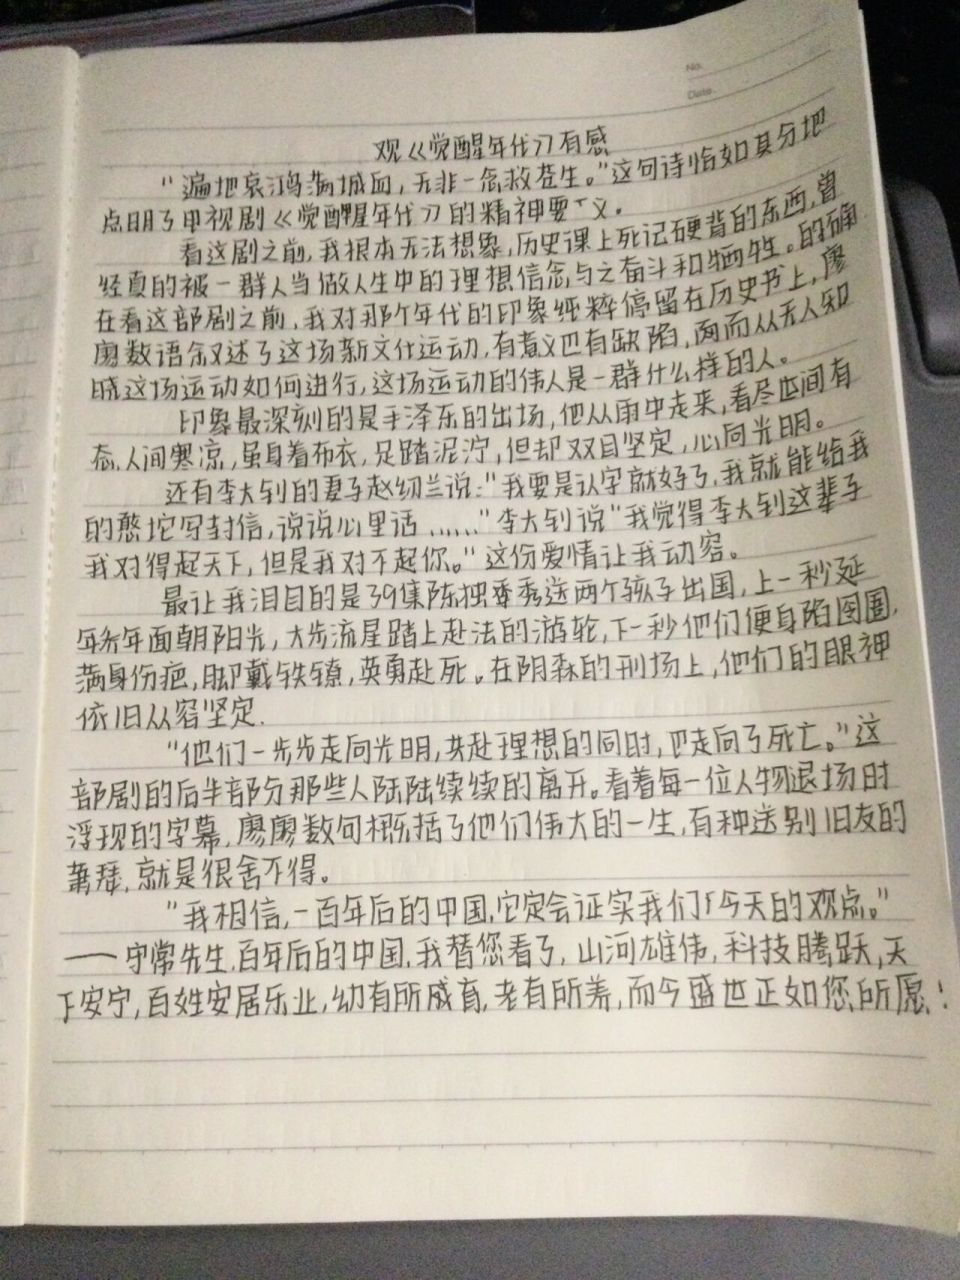 No.
Date
观《觉醒年代》有感
“遍地哀鸿满城血,无非一念救苍生。”这句诗恰如其分地
点明了电视剧《觉醒年代》的精神要义。
看这剧之前,我根本无法想象,历史课上死记硬背的东西,曾
经真的被一群人当做人生中的理想信念与之奋斗和牺牲。的确
在看这部剧之前,我对那个年代的印象纯粹停留在历史书上,廖
廖数语叙述了这场新文化运动,有意义也有缺陷,两而从无人知
晓这场运动如何进行,这场运动的伟人是一群什么样的人。
印象最深刻的是毛泽东的出场,他从雨中走来,看尽世间有
态,人间寒凉,虽身着布衣,足踏泥泞,但却双目坚定,心向光明。
还有李大钊的妻子赵纫兰说:“我要是认字就好了,我就能给我
的憨坨写封信,说说心里话......”李大钊说“我觉得李大钊这辈子
我对得起天下,但是我对不起你。”这份爱情让我动容。
最让我泪目的是39集陈独秀送两个孩子出国,上一秒延
年乔年面朝阳光,大步流星踏上赴法的游轮,下一秒他们便身陷囹圄,
满身伤疤,脚戴铁镣,英勇赴死。在阴森的刑场上,他们的眼神
依旧从容坚定.
“他们一步步走向光明,共赴理想的同时,也走向了死亡。”这
部剧的后半部分那些人陆陆续续的离开。看着每一位人物退场时
浮现的字幕,廖廖数句概括了他们伟大的一生,有种送别旧友的
萧瑟,就是很舍不得。
“我相信,一百年后的中国,它定会证实我们今天的观点。”
——守常先生,百年后的中国,我替您看了,山河雄伟,科技腾跃,天
下安宁,百姓安居乐业,幼有所成育,老有所养,而今盛世正如您所愿!